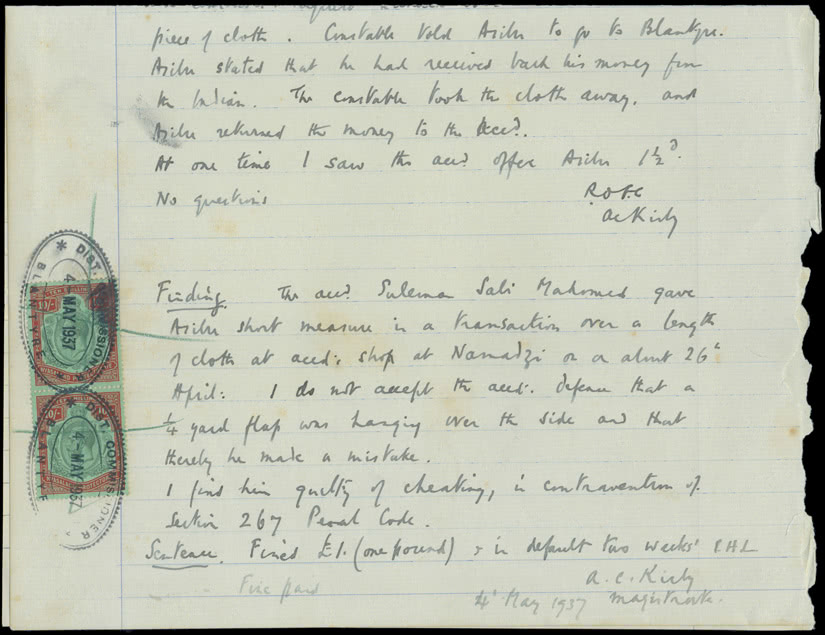 piece of cloth. Constable told Asibu to go to Blantyre.
Asibu stated that he had received back his money from
the Indian. The Constable took the cloth away, and
Asibu returned the money to the Accd.
At one time I saw the accd offer Asibu 1½d.
No questions
R.O.F.C
ACKirby
Finding. The accd Suleman Sali Mahomed gave
Asibu short measure in a transaction over a length
of cloth at accd's shop at Namadzi on or about 26th
April: I do not accept the accd's defence that a
¼ yard flap was hanging over the side and that
thereby he made a mistake.
I find him guilty of cheating, in contravention of
Section 267 Penal Code.
Sentence. Fined £1. (one pound) & in default two weeks' I.H.L
A.C.Kirby
Fine paid
4th May 1937 Magistrate.
* DIST. COMMISSIONER *
BLANTYRE
4-MAY 1937
10/-
* DIST. COMMISSIONER *
BLANTYRE
4-MAY 1937
10/-